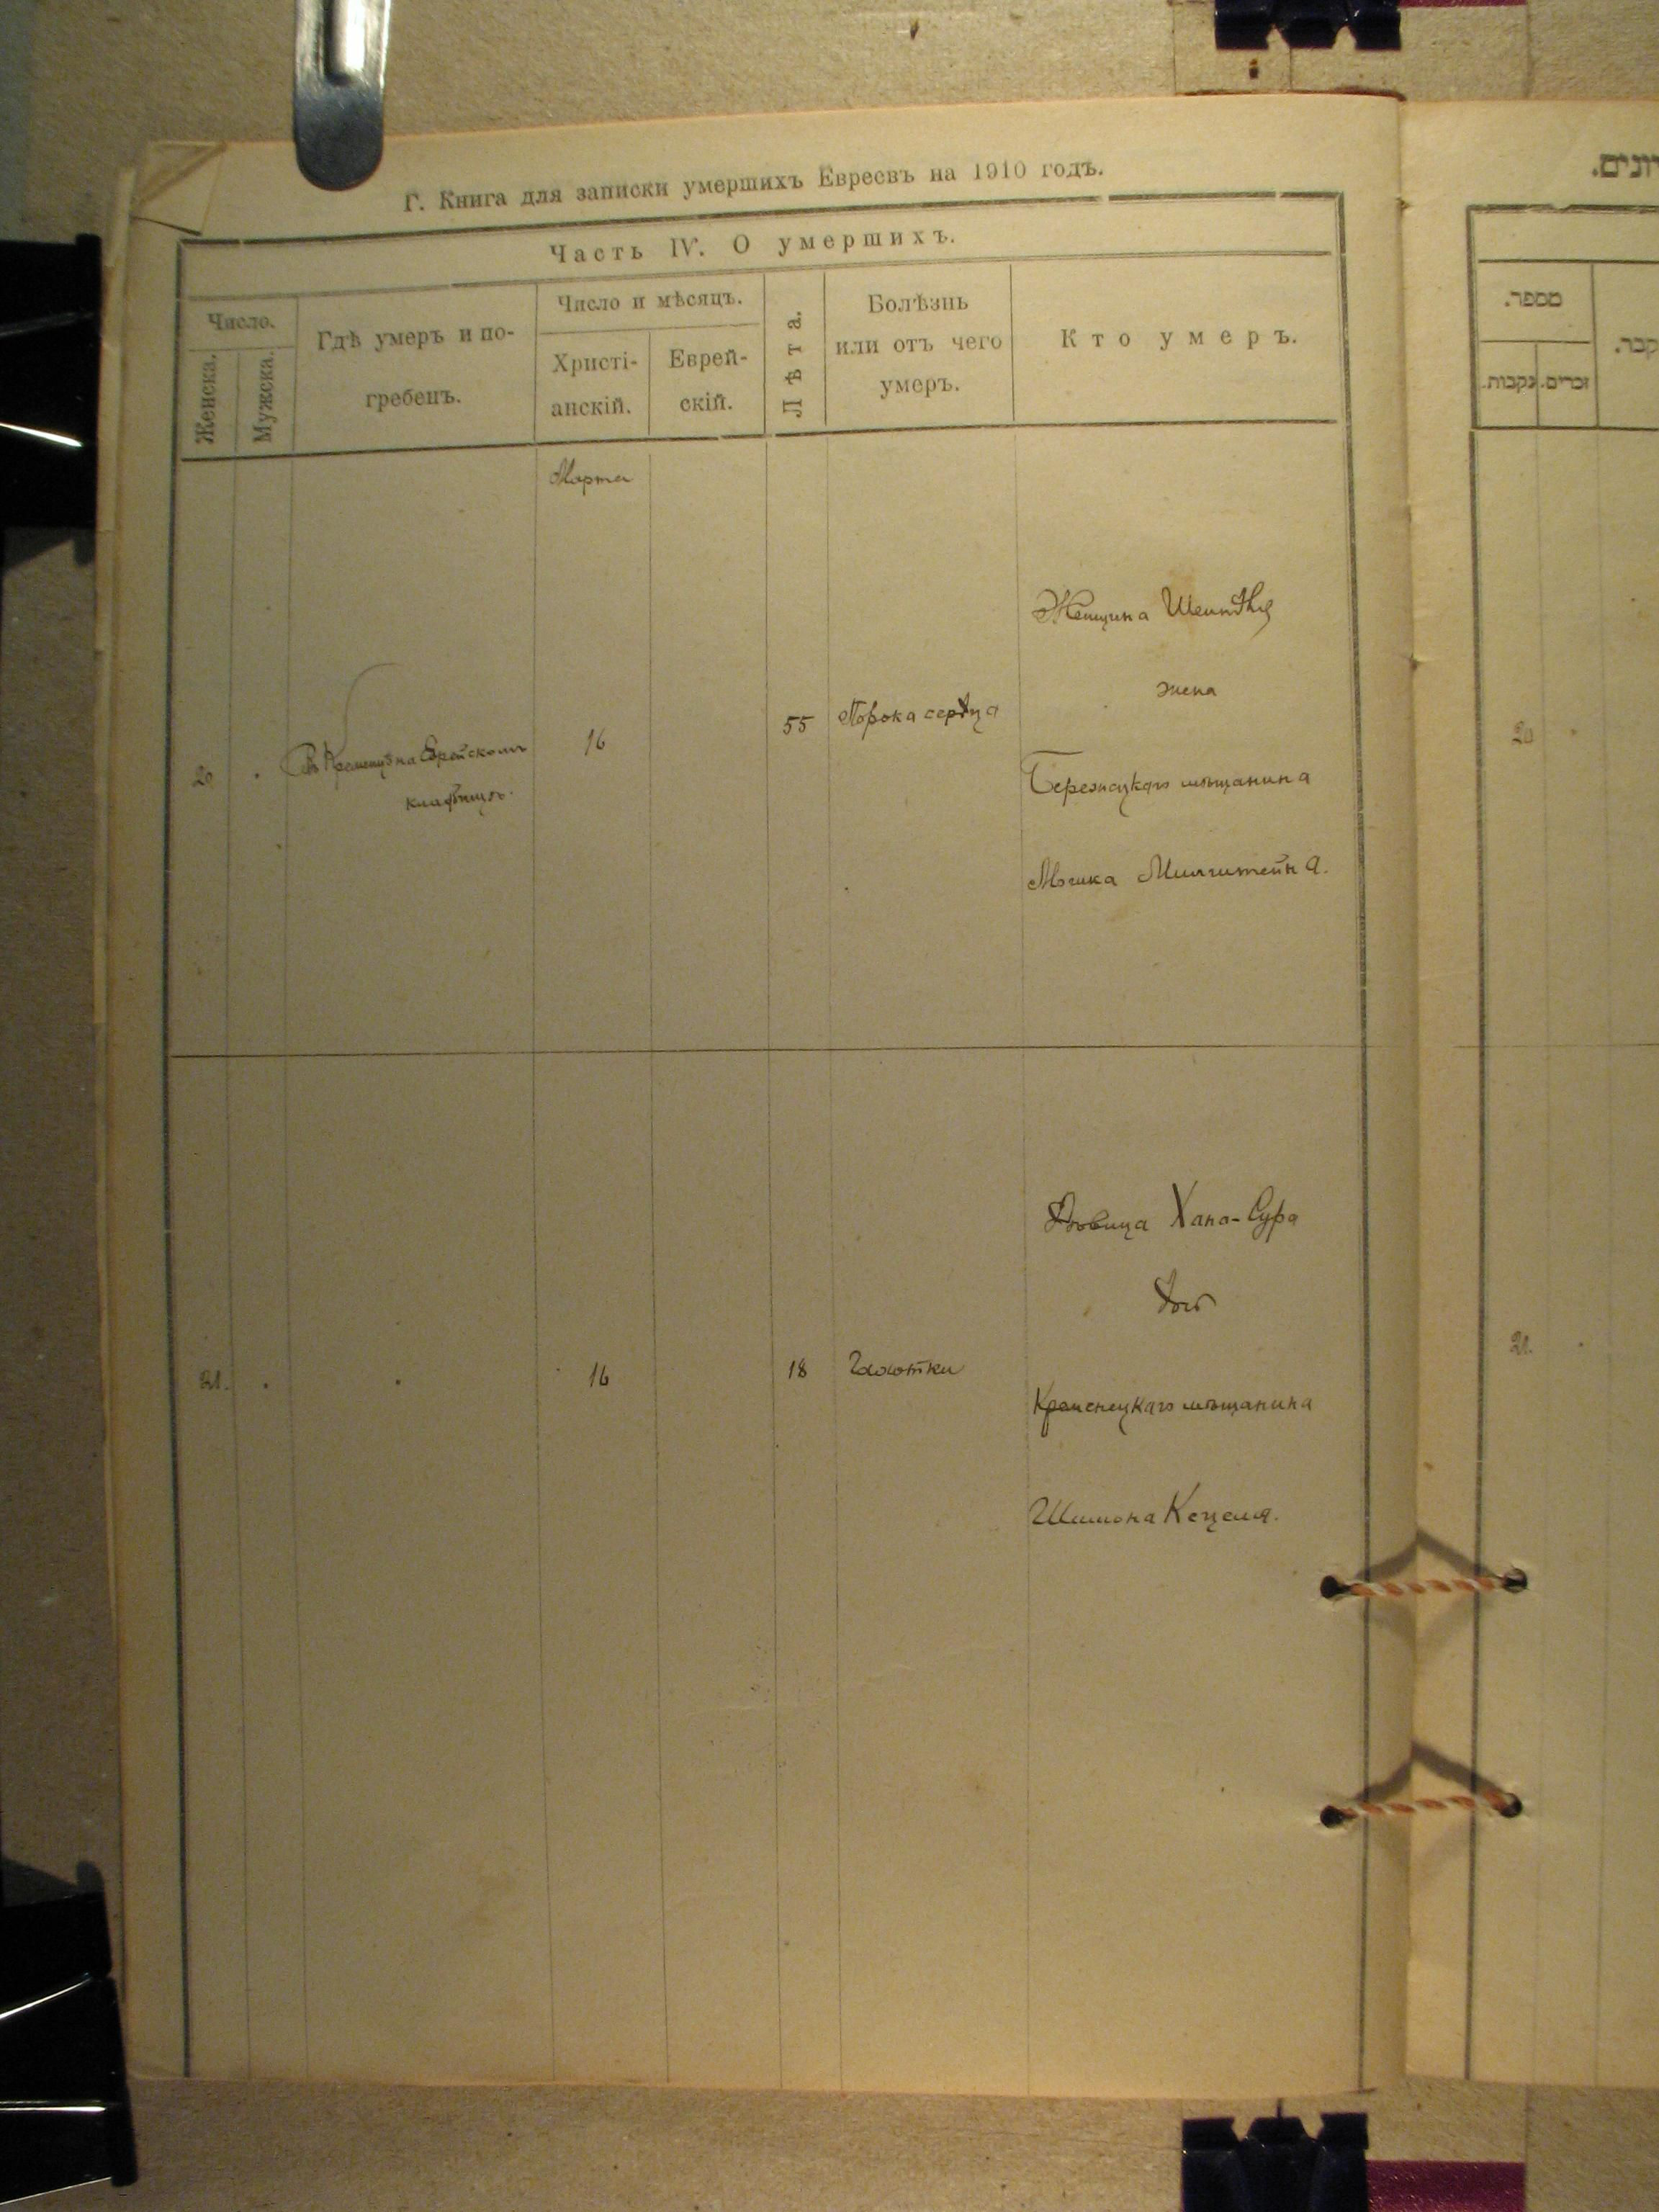 Г. Книга для записки умершихъ Евреевъ на 1910 годъ.
Часть IV. О умершихъ.
Число.
Женска.
Мужска.
Гдѣ умеръ и по-
гребенъ.
Число и мѣсяцъ.
Христі-
анскій.
Еврей-
скій.
Лѣта.
Болѣзнь
или отъ чего
умеръ.
Кто умеръ.
Марта
20
на Еврейскомъ
кладбищѣ.
16
55
Порока сердца
Женщина
жена
Бережецкаго мѣщанина
Мошка Милштейна.
21.
16
18
Чахотки
Дѣвица Хана-Сура
дочь
Кременецкаго мѣщанина
Шимона Кецеля.
מספר.
נקבות.
זכרים.
20
21.